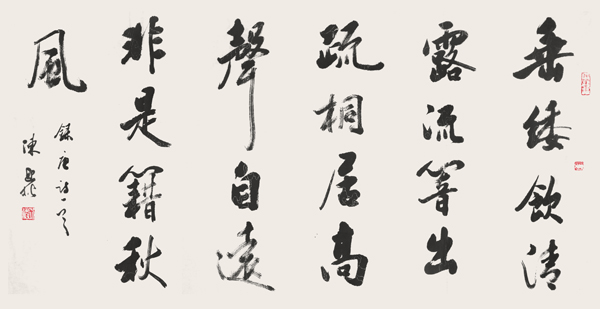 垂緌飲清
露流響出
疏桐居高
聲自遠
非是籍秋
風
錄唐詩一首
陳